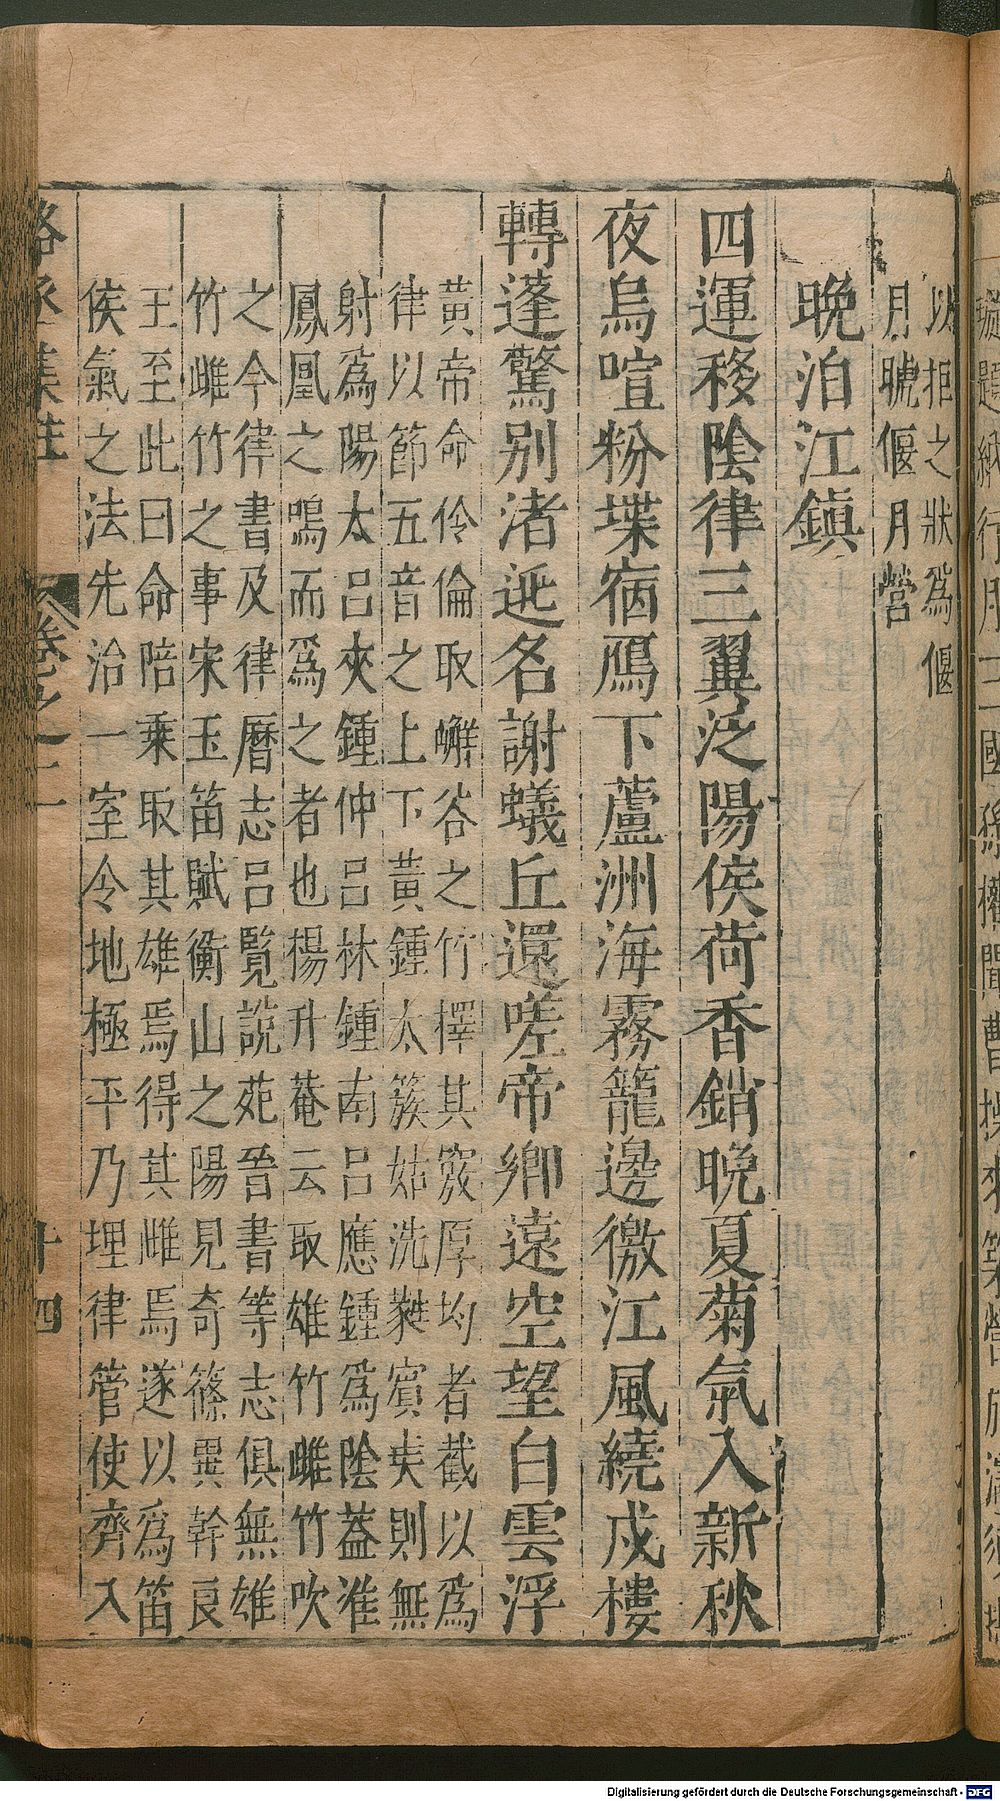 以拒之狀爲偃
月號偃月營
晩泊江鎮
四運移陰律三翼泛陽侯荷香銷晩夏菊氣入新秋
夜烏喧粉堞宿鴈下蘆洲海霧籠邊徼江風繞戍樓
轉蓬驚别渚逰名謝蟻丘還嗟帝鄉遠空望白雲浮
黃帝命伶倫取嶰谷之竹擇其竅厚均者截以爲
律以節五音之上下黃鍾太簇姑洗蕤賓夷則無
射爲陽太吕夾鍾仲吕林鍾南吕應鍾爲陰葢准
鳳凰之鳴而爲之者也楊升菴云取雄竹雌竹吹
之今律書及律曆志吕覽說苑晉書等志俱無雄
竹雌竹之事宋玉笛賦衡山之陽見奇篠異幹良
王至此曰命陪乗取其雄焉得其雌焉遂以爲笛
侯氣之法先治一室令地極平乃埋律管使齊入
駱丞集註 卷之二 十四
Digitalisierung gefördert durch die Deutsche Forschungsgemeinschaft - DFG